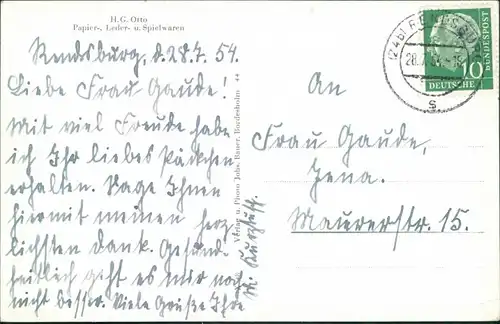 H. G. Otto
Papier-, Leder- u. Spielwaren
Rendsburg, d. 28.7.54.
Liebe Frau Gaude!
Mit viel Freude habe
ich Ihr liebes Päckchen
erhalten. Sage Ihnen
hiermit meinen herz
lichsten Dank. Gesund-
heitlich geht es mir noch
nicht besser. Viele Grüße Ihre
Verlag u. Photo Johs. Bauer, Bordesholm 44
An
Frau Gaude,
Jena.
Maurerstr. 15.
(24b) RENDSBURG
28.7.54
s
10
DEUTSCHE
BUNDESPOST